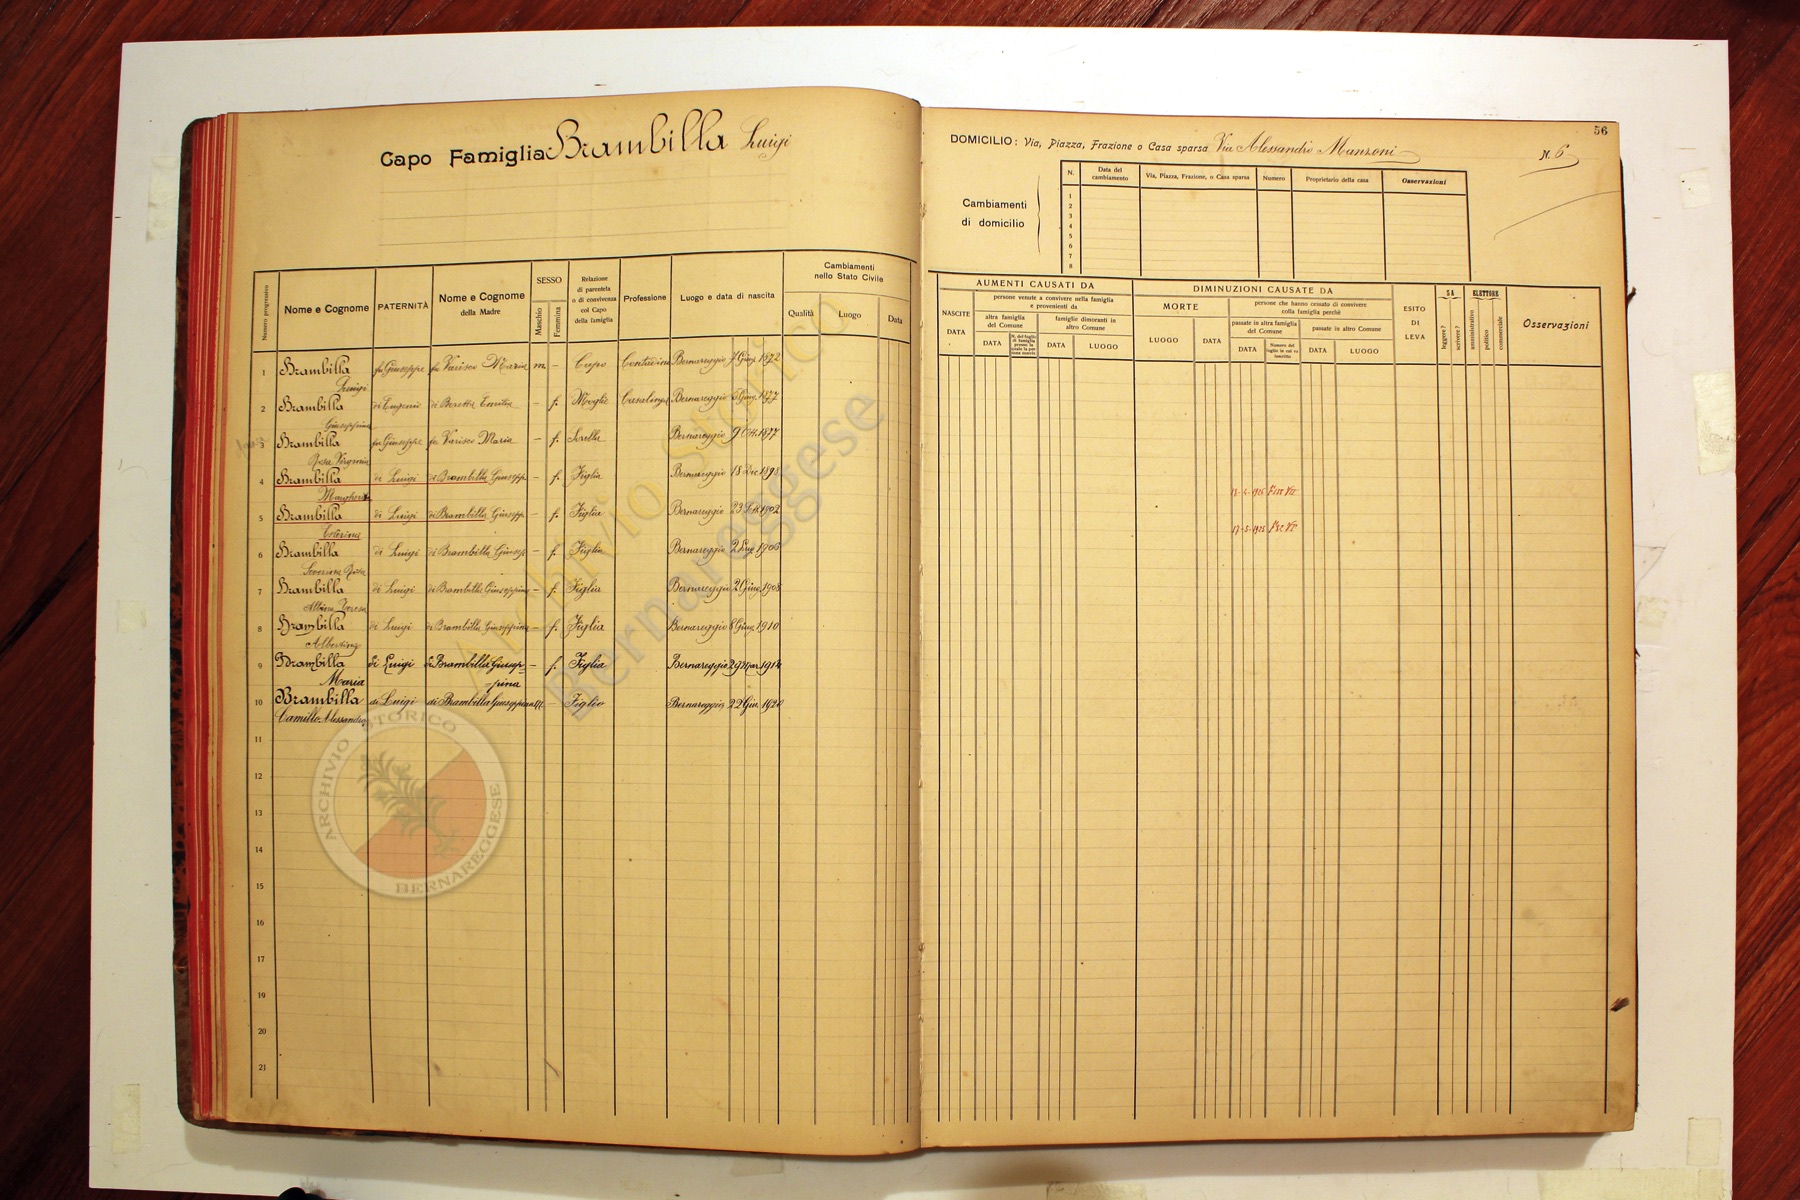 Capo Famiglia Brambilla Luigi
Numero progressivo
Nome e Cognome
PATERNITÀ
Nome e Cognome
della Madre
SESSO
Maschio
Femmina
Relazione
di parentela
o di convivenza
col Capo
della famiglia
Professione
Luogo e data di nascita
Cambiamenti
nello Stato Civile
Qualità
Luogo
Data
1 Brambilla fu Giuseppe fu Varisco Maria m – Capo Contadino Bernareggio 1872
Luigi
2 Brambilla di Eugenio di Beretta Emilia – f. Moglie Casalinga Bernareggio 1877
Giuseppina
3 Brambilla fu Giuseppe fu Varisco Maria – f. Sorella Bernareggio 9 Ott. 1877
Rosa Virginia
4 Brambilla di Luigi di Brambilla Giusepp. – f. Figlia Bernareggio 18 Dic 1898
Margherita
5 Brambilla di Luigi di Brambilla Giusepp. – f. Figlia Bernareggio 23 1902
6 Brambilla di Luigi di Brambilla Giusep – f. Figlia Bernareggio 2 1906
Rosa
7 Brambilla di Luigi di Brambilla Giuseppina – f. Figlia Bernareggio 2 Giug. 1908
Albina Teresa
8 Brambilla di Luigi di Brambilla Giuseppina – f. Figlia Bernareggio 8 Giug. 1910
Albertina
9 Brambilla di Luigi di Brambilla Giusep- – f. Figlia Bernareggio 29 Mar 1914
Maria -pina
10 Brambilla di Luigi di Brambilla Giuseppina M. – Figlio Bernareggio 22 Giu. 1920
Camillo Alessandro
11
12
13
14
15
16
17
18
19
20
21
Archivio Storico
Bernareggese
ARCHIVIO STORICO
BERNAREGGESE
56
DOMICILIO: Via, Piazza, Frazione o Casa sparsa Via Alessandro Manzoni N. 6
Cambiamenti
di domicilio
N.
Data del
cambiamento
Via, Piazza, Frazione, o Casa sparsa
Numero
Proprietario della casa
Osservazioni
1
2
3
4
5
6
7
8
AUMENTI CAUSATI DA
NASCITE
DATA
persone venute a convivere nella famiglia
e provenienti da
altra famiglia
del Comune
DATA
famiglie dimoranti in
altro Comune
DATA
LUOGO
DIMINUZIONI CAUSATE DA
MORTE
LUOGO
DATA
persone che hanno cessato di convivere
colla famiglia perchè
passate in altra famiglia
del Comune
DATA
Numero del
foglio in cui va
inscritto
passate in altro Comune
DATA
LUOGO
ESITO
DI
LEVA
SA
leggere?
scrivere?
ELETTORE
amministrativo
politico
commerciale
Osservazioni
17-5-1925